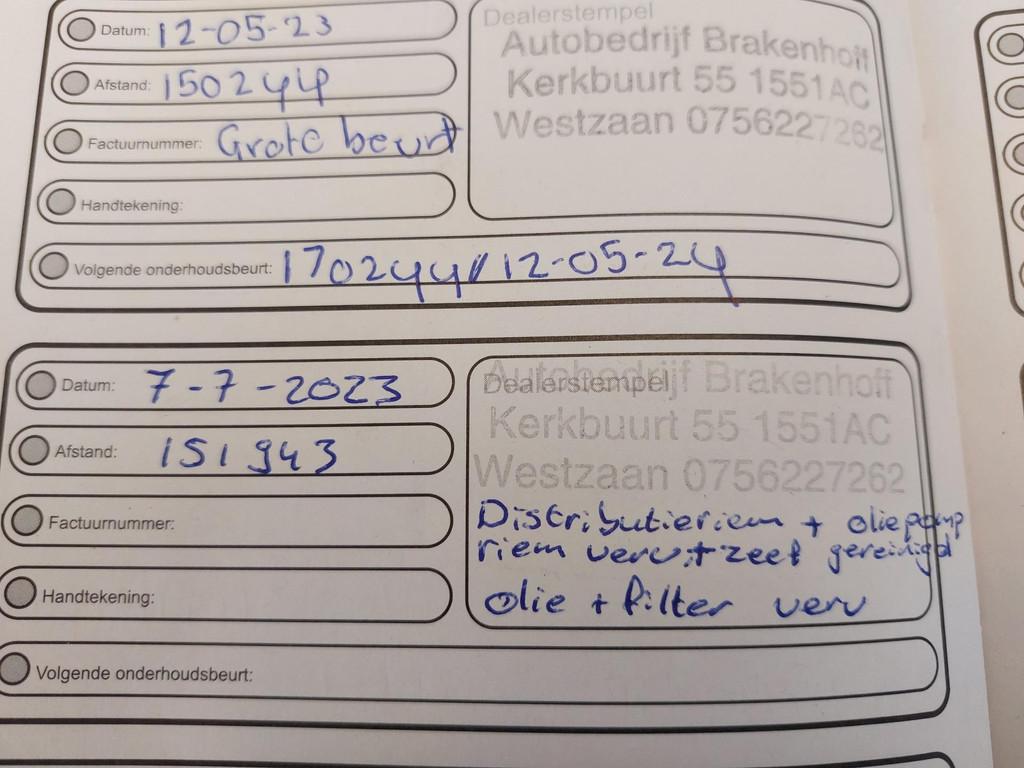 Datum: 12-05-23
Dealerstempel
Autobedrijf Brakenhoff
Afstand: 150244
Kerkbuurt 55 1551AC
Factuurnummer: Grote beurt
Westzaan 0756227262
Handtekening:
Volgende onderhoudsbeurt: 170244/12-05-24
Datum: 7-7-2023
Dealerstempel
Autobedrijf Brakenhoff
Afstand: 151943
Kerkbuurt 55 1551AC
Westzaan 0756227262
Factuurnummer:
Distributieriem + oliepomp
riem verv + zeef gereinigd
Handtekening:
olie + filter verv
Volgende onderhoudsbeurt: